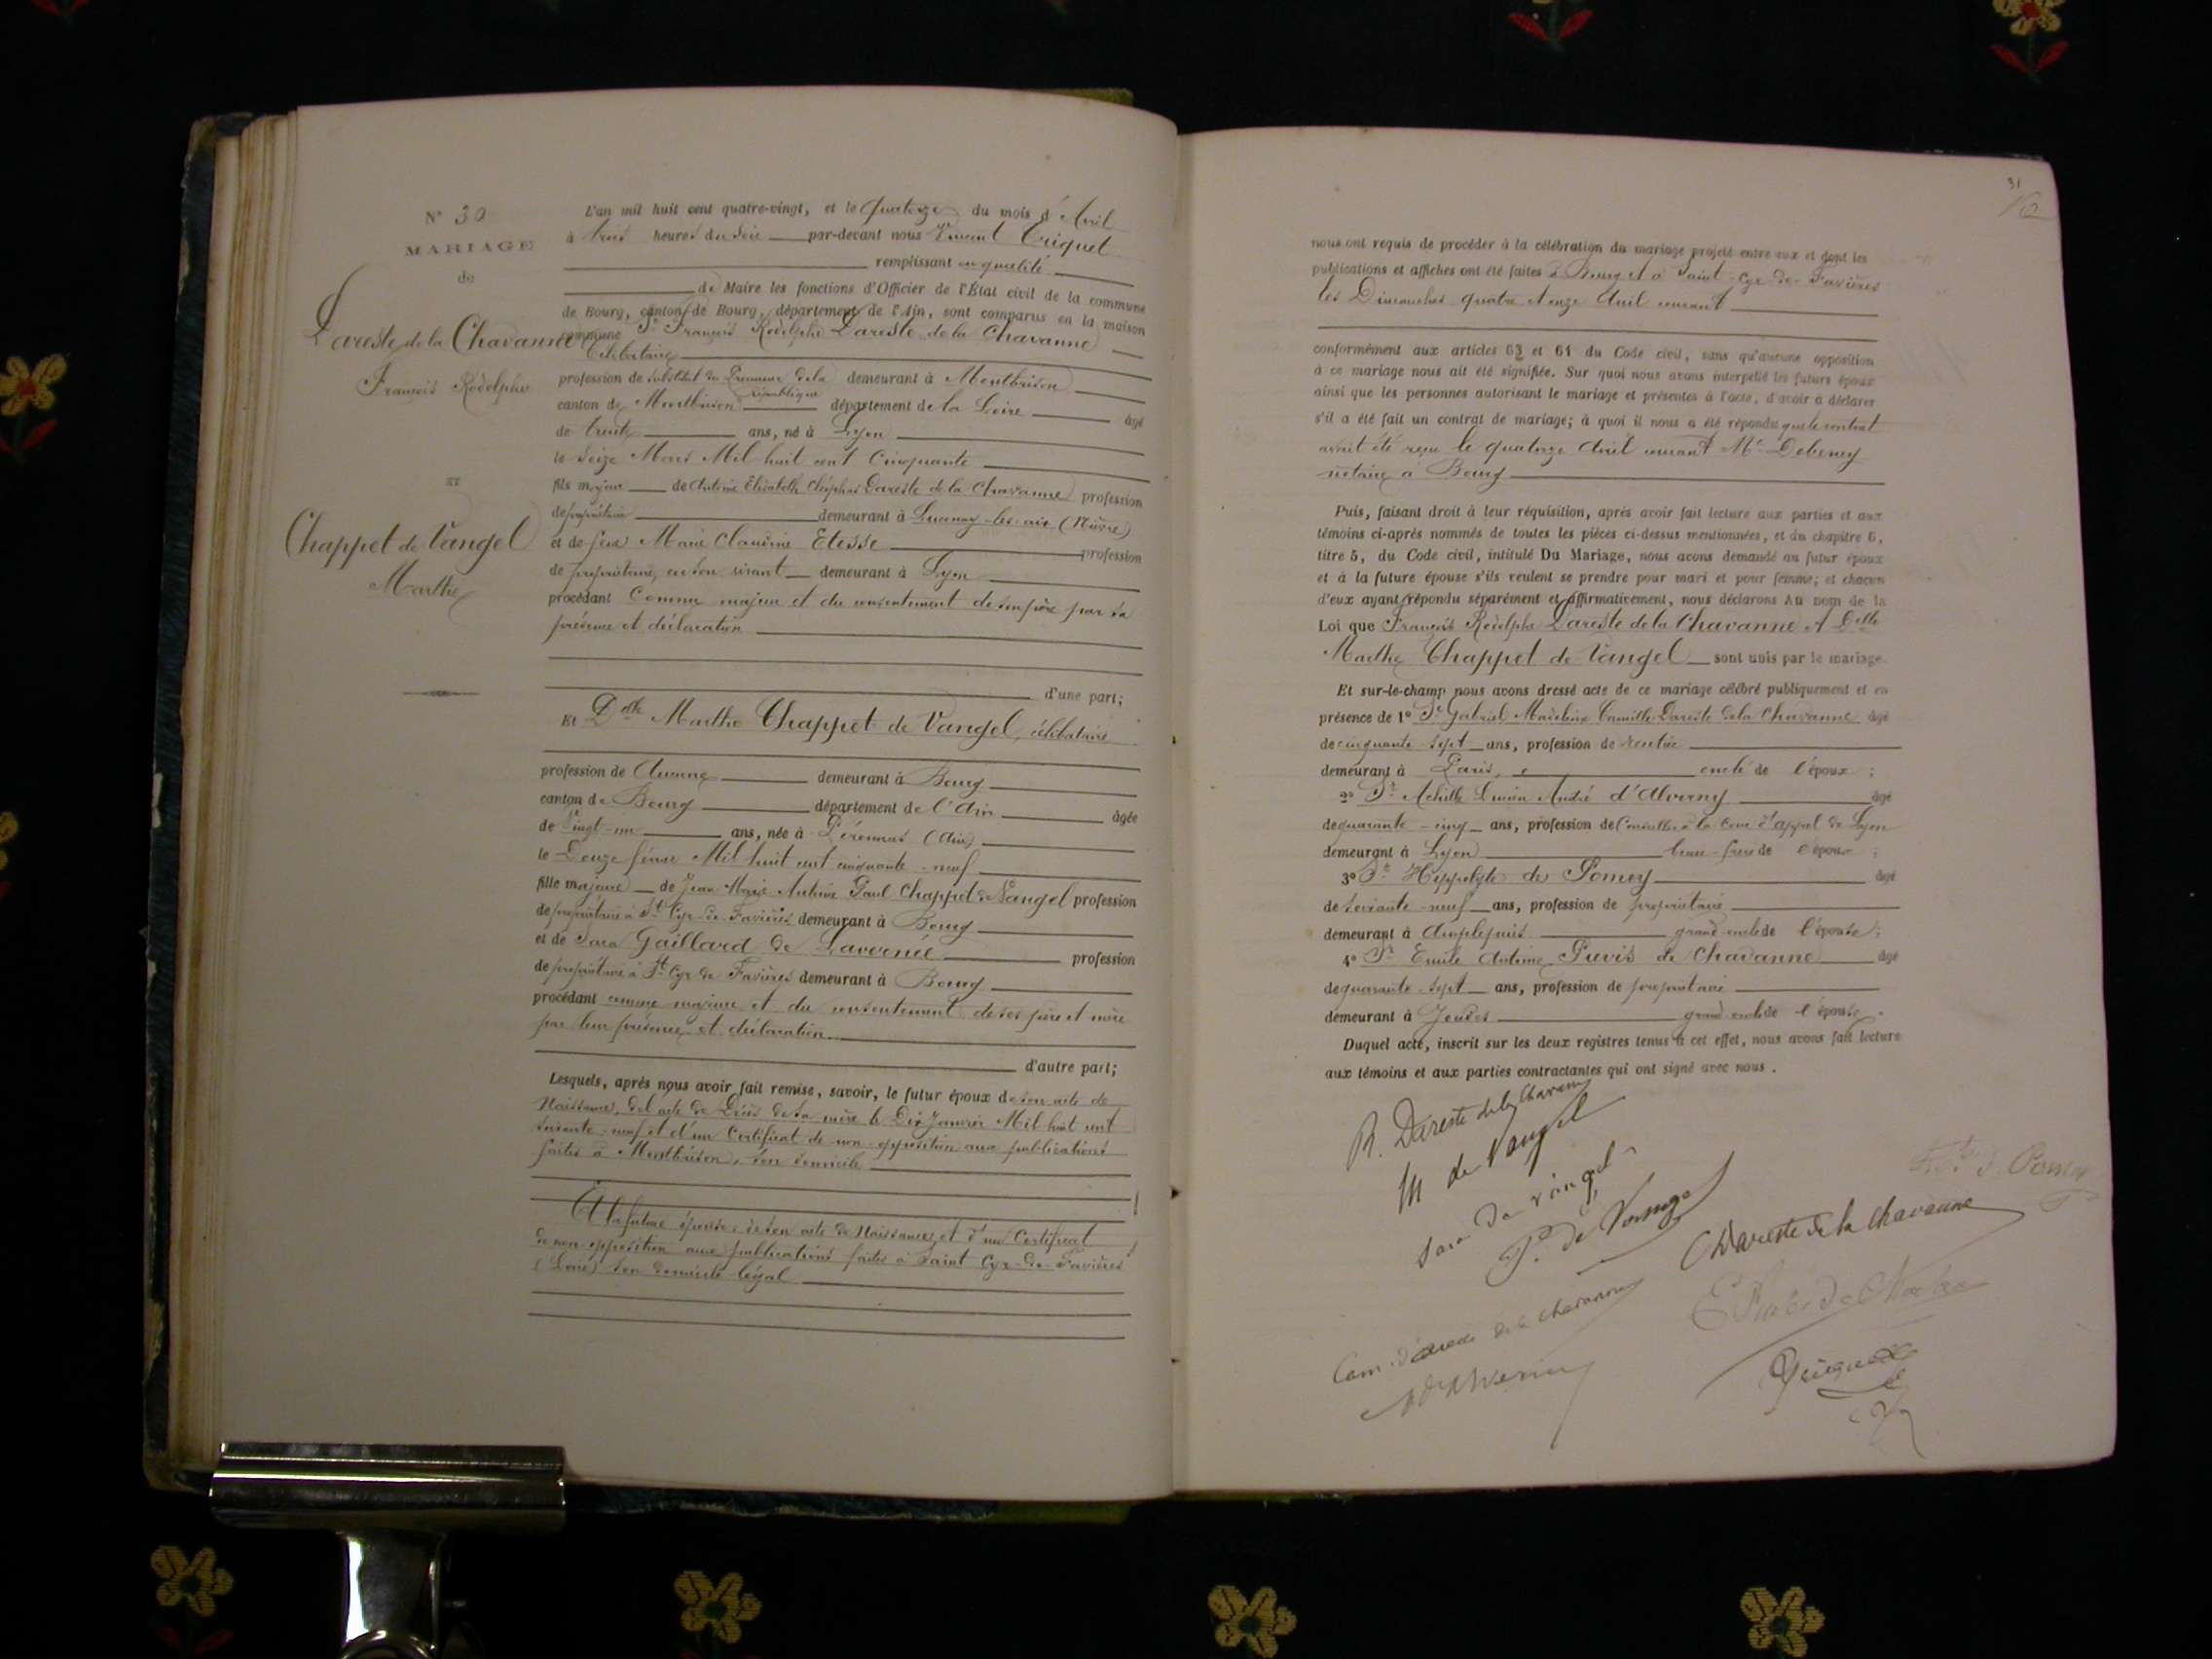 N° 30
MARIAGE
de
Dareste de la Chavanne
François Rodolphe
ET
Chappet de Vangel
Marthe
L'an mil huit cent quatre-vingt, et le quatorze du mois d'Avril
à trois heures du soir par-devant nous Vincent Triquet
remplissant en qualité
de Maire les fonctions d'Officier de l'État civil de la commune
de Bourg, canton de Bourg, département de l'Ain, sont comparus en la maison
commune Sr François Rodolphe Dareste de la Chavanne
Célibataire
profession de Substitut du Procureur de la république demeurant à Montbrison
canton de Montbrison département de la Loire âgé
de trente ans, né à Lyon
le seize Mars Mil huit cent cinquante
fils majeur de Antoine Elisabeth Cléophas Dareste de la Chavanne profession
de propriétaire demeurant à Lucenay-les-aix (Nièvre)
et de feue Marie Claudine Etesse profession
de propriétaire, en son vivant demeurant à Lyon
procédant comme majeur et du consentement de son père par sa
présence et déclaration
d'une part;
Et Dlle Marthe Chappet de Vangel, célibataire
profession de Aucune demeurant à Bourg
canton de Bourg département de l'Ain âgée
de vingt-un ans, née à Péronnas (Ain)
le Douze février Mil huit cent cinquante-neuf
fille majeure de Jean Marie Antoine Paul Chappet de Vangel profession
de propriétaire à St Cyr-de-Favières demeurant à Bourg
et de Sara Gaillard de Lavernée profession
de propriétaire à St Cyr de Favières demeurant à Bourg
procédant comme majeure et du consentement de ses père et mère
par leur présence et déclaration
d'autre part;
Lesquels, après nous avoir fait remise, savoir, le futur époux de son acte de
Naissance, de l'acte de Décès de sa mère le Dix Janvier Mil huit cent
soixante-neuf et d'un Certificat de non-opposition aux publications
faites à Montbrison, son domicile
Et la future épouse, de son acte de Naissance, et d'un Certificat
de non-opposition aux publications faites à Saint Cyr-de-Favières
(Loire) son domicile légal
31
nous ont requis de procéder à la célébration du mariage projeté entre eux et dont les
publications et affiches ont été faites à Bourg et à Saint-Cyr-de-Favières
les Dimanches quatre et onze Avril courant
conformément aux articles 63 et 64 du Code civil, sans qu'aucune opposition
à ce mariage nous ait été signifiée. Sur quoi nous avons interpellé les futurs époux
ainsi que les personnes autorisant le mariage et présentes à l'acte, d'avoir à déclarer
s'il a été fait un contrat de mariage; à quoi il nous a été répondu que le contrat
avait été reçu le quatorze Avril courant Me Debeney
notaire à Bourg
Puis, faisant droit à leur réquisition, après avoir fait lecture aux parties et aux
témoins ci-après nommés de toutes les pièces ci-dessus mentionnées, et du chapitre 6,
titre 5, du Code civil, intitulé Du Mariage, nous avons demandé au futur époux
et à la future épouse s'ils veulent se prendre pour mari et pour femme; et chacun
d'eux ayant répondu séparément et affirmativement, nous déclarons au nom de la
Loi que François Rodolphe Dareste de la Chavanne et Delle
Marthe Chappet de Vangel sont unis par le mariage
Et sur-le-champ nous avons dressé acte de ce mariage célébré publiquement et en
présence de 1° Sr Gabriel Madeleine Camille Dareste de la Chavanne âgé
de cinquante-sept ans, profession de rentier
demeurant à Paris, oncle de l'époux;
2° Sr Achille Lucien André d'Alverny âgé
de quarante-cinq ans, profession de Conseiller à la Cour d'appel de Lyon
demeurant à Lyon beau-frère de l'époux;
3° Sr Hippolyte de Pomey âgé
de soixante-neuf ans, profession de propriétaire
demeurant à Amplepuis grand-oncle de l'épouse;
4° Sr Emile Antoine Puvis de Chavanne âgé
de quarante-sept ans, profession de propriétaire
demeurant à Joudes grand-oncle de l'épouse.
Duquel acte, inscrit sur les deux registres tenus à cet effet, nous avons fait lecture
aux témoins et aux parties contractantes qui ont signé avec nous.
R. Dareste de la Chavanne
M de Vangel
Sara de Vangel
P. de Vangel
C Dareste de la Chavanne
Cam. Dareste de la Chavanne
A d'Alverny